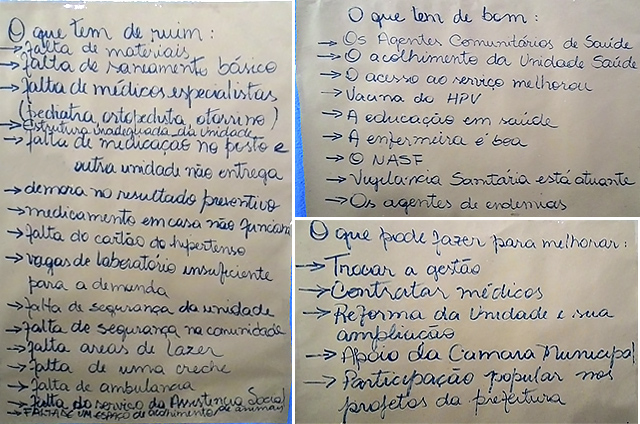 O que tem de ruim:
→ falta de materiais
→ falta de saneamento básico
→ falta de médicos especialistas
(pediatra, ortopedista, otorrino)
→ Estrutura inadequada da Unidade
→ falta de medicação no posto e
outra unidade não entrega
→ demora no resultado preventivo
→ medicamento em casa não funciona
→ falta do cartão do hipertenso
→ vagas de laboratório insuficiente
para a demanda
→ falta de segurança da unidade
→ falta de segurança na comunidade
→ falta areas de lazer
→ falta de uma creche
→ falta de ambulancia
→ falta do serviço da Assistência Social
→ FALTA DE UM ESPAÇO de acolhimento de animais
O que tem de bom:
→ Os Agentes Comunitários de Saúde
→ O acolhimento da Unidade Saúde
→ O acesso ao serviço melhorou
→ Vacina do HPV
→ A educação em saúde
→ A enfermeira é boa
→ O NASF
→ Vigilancia Sanitária está atuante
→ Os agentes de endemias
O que pode fazer para melhorar:
→ Trocar a gestão
→ Contratar médicos
→ Reforma da Unidade e sua
ampliação
→ Apoio da Camara Municipal
→ Participação popular nos
projetos da prefeitura